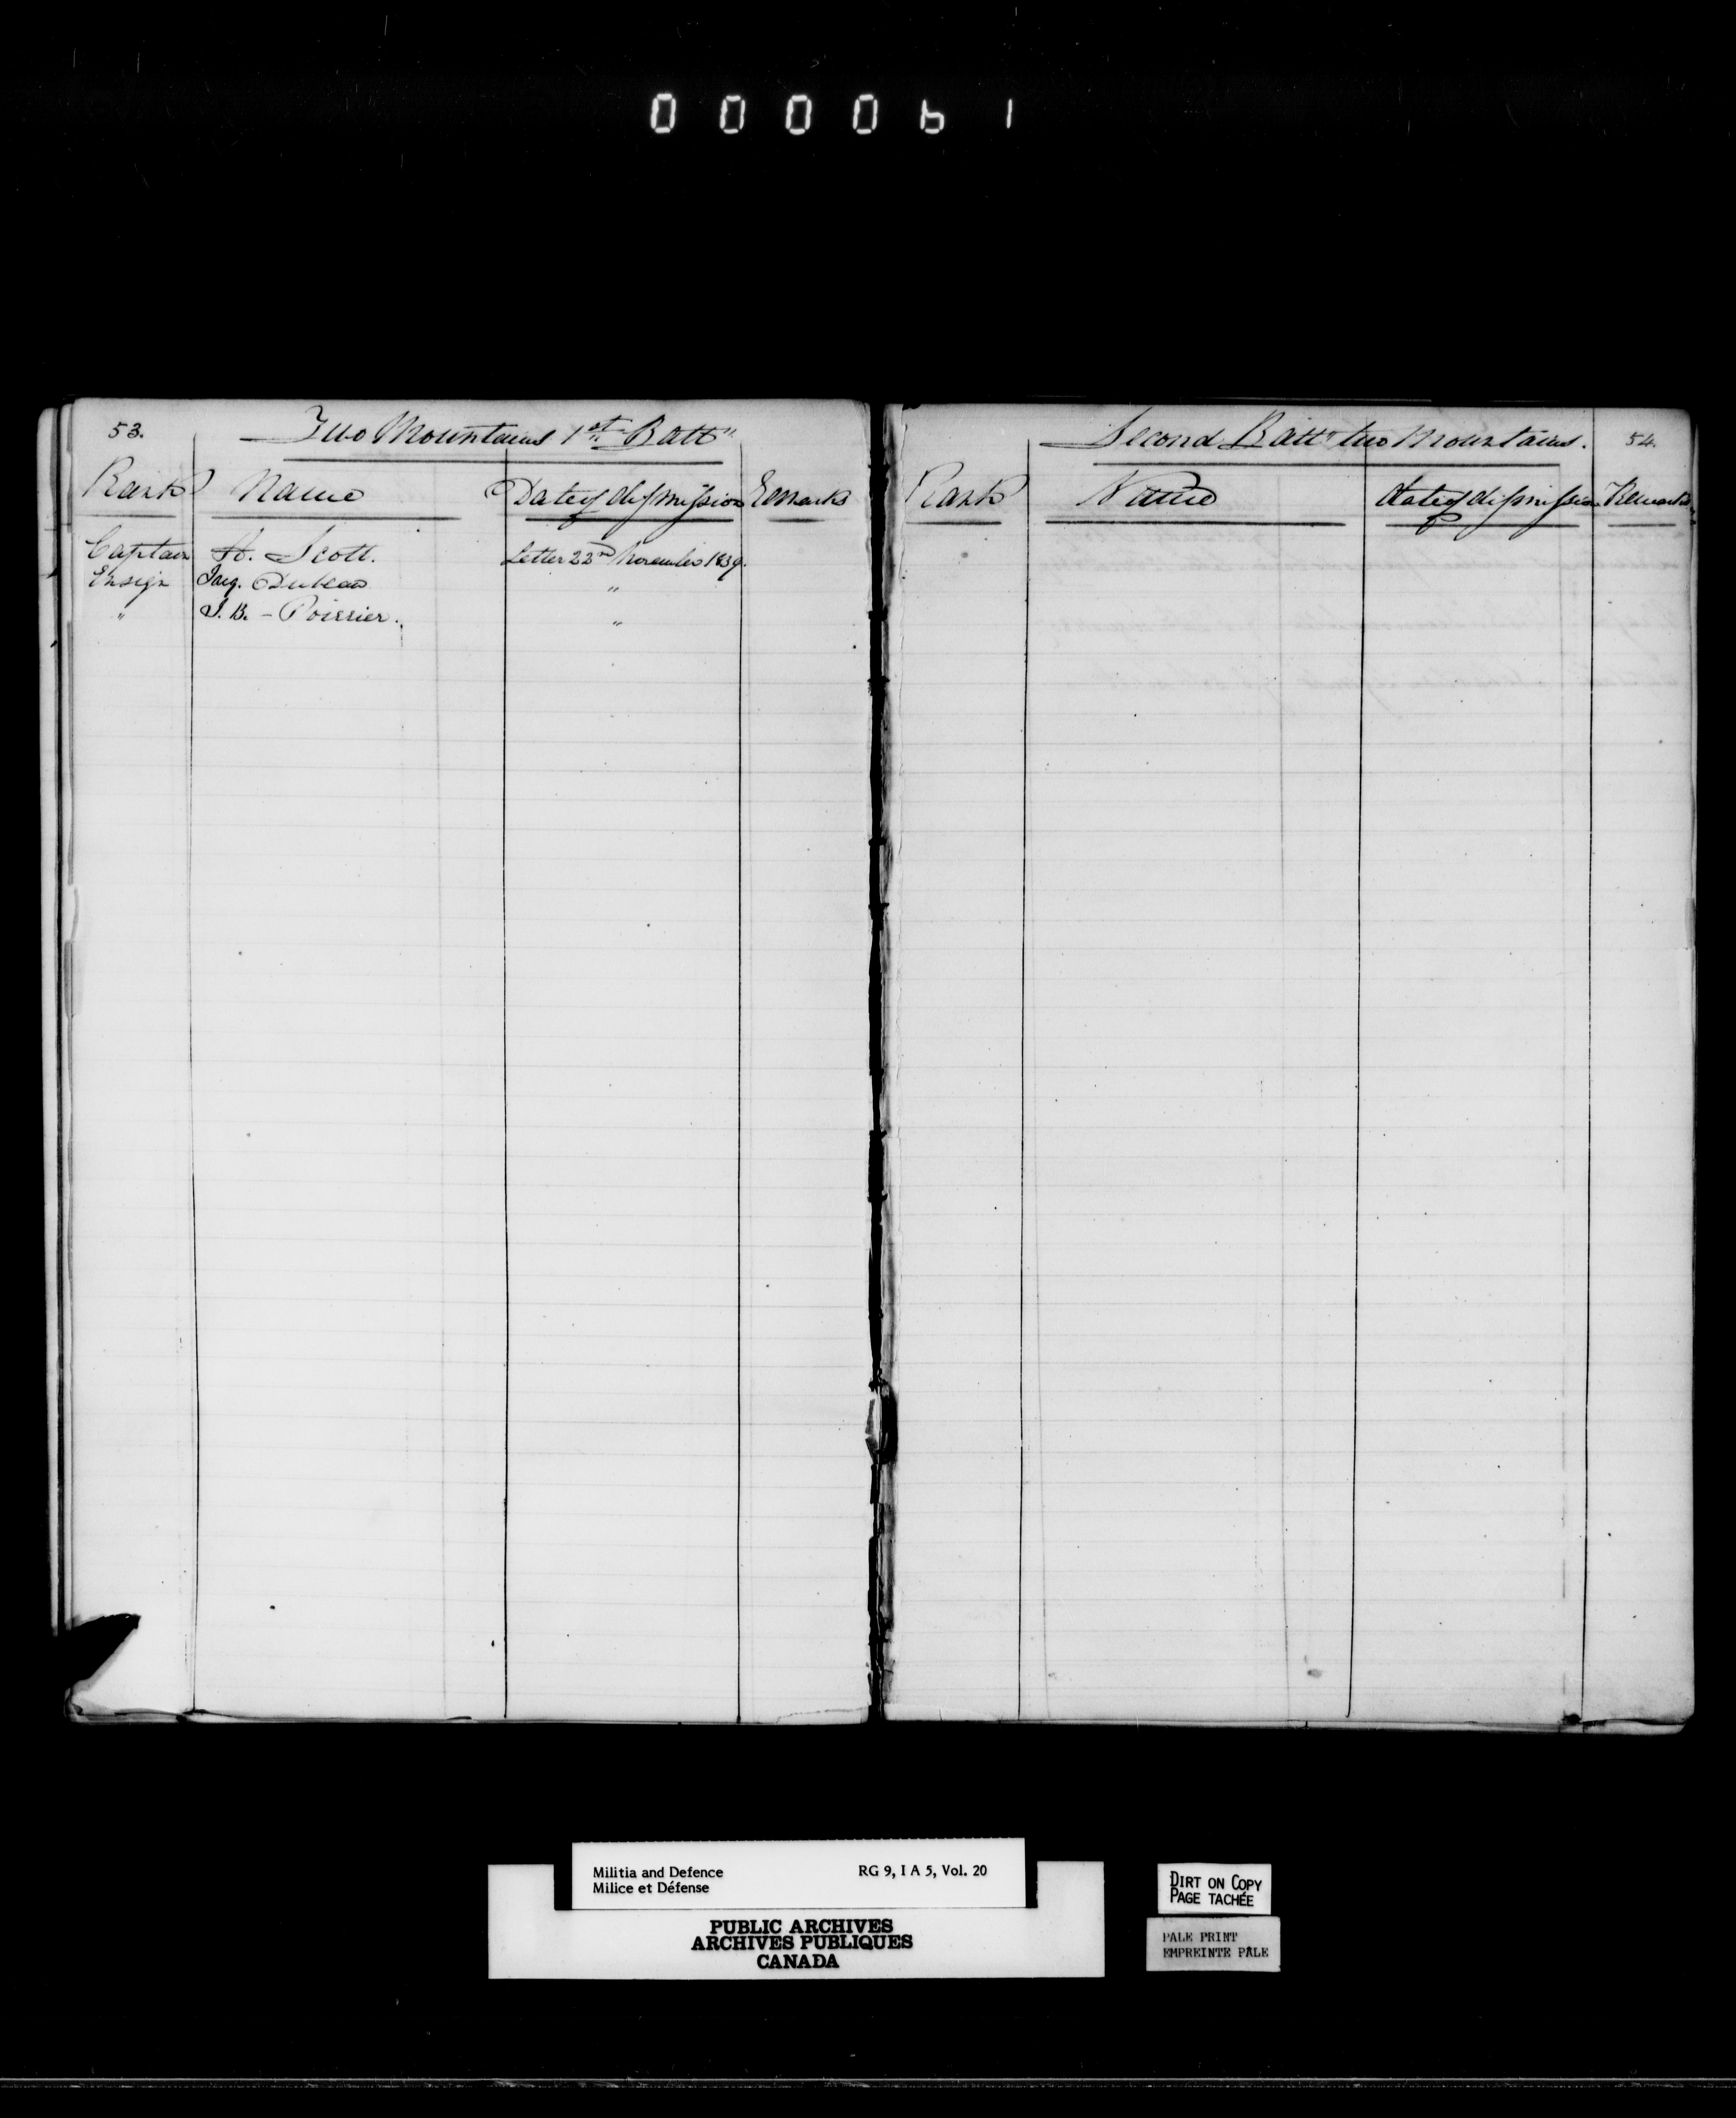 000061
53.
Two Mountains 1st Battn
Rank Name Date of dismission Remarks
Captain Scott. Letter 22nd November 1839.
Ensign Jacq. Dubeau "
" J. B. - Poirrier. "
Second Battn two Mountains. 54.
Rank Name date of dismission Remarks
Militia and Defence RG 9, I A 5, Vol. 20
Milice et Défense
PUBLIC ARCHIVES
ARCHIVES PUBLIQUES
CANADA
DIRT ON COPY
PAGE TACHÉE
PALE PRINT
EMPREINTE PÂLE